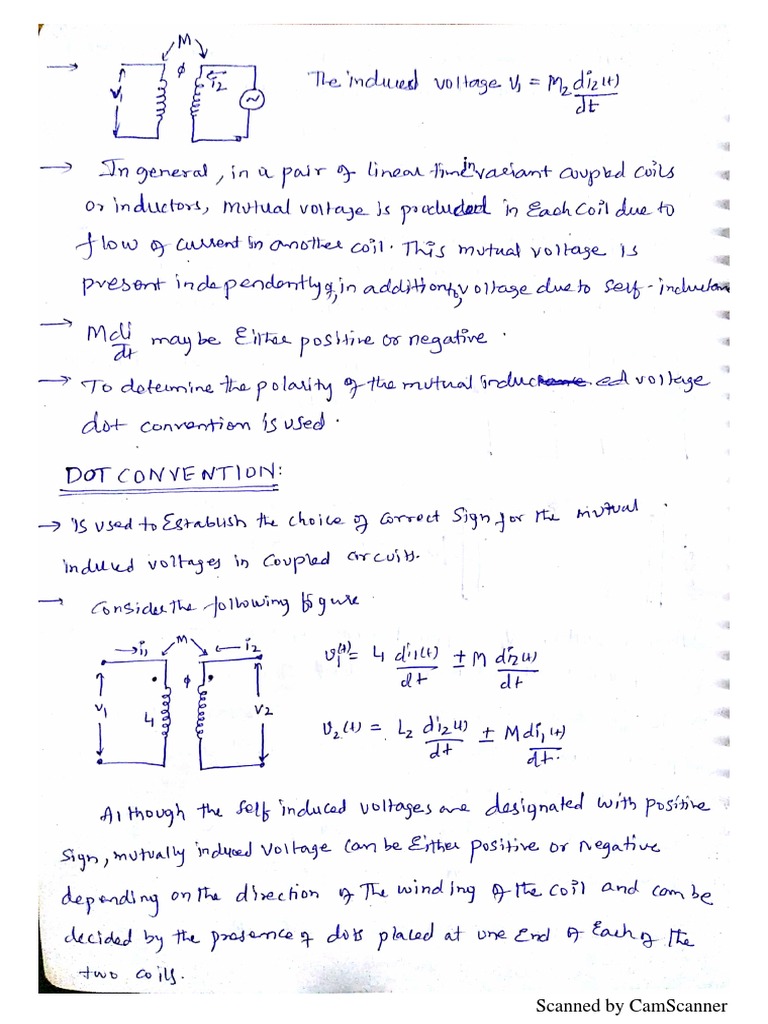 M
→ V1 φ i2 The induced voltage V1 = M2 di2(t)/dt
→ In general, in a pair of linear time invariant coupled coils
or inductors, mutual voltage is produced in each coil due to
flow of current in another coil. This mutual voltage is
present independently of, in addition to, voltage due to self-induction
→ M di/dt may be Either positive or negative.
→ To determine the polarity of the mutual induced voltage
dot convention is used.
DOT CONVENTION:
→ is used to Establish the choice of correct sign for the mutual
induced voltages in coupled circuits.
→ Consider the following figure
→ i1 M ← i2
V1 L1 φ V2
v1(t) = L1 di1(t)/dt ± M di2(t)/dt
v2(t) = L2 di2(t)/dt ± M di1(t)/dt.
Although the self induced voltages are designated with positive
sign, mutually induced voltage can be Either positive or negative
depending on the direction of the winding of the coil and can be
decided by the presence of dots placed at one End of Each of the
two coils.
Scanned by CamScanner